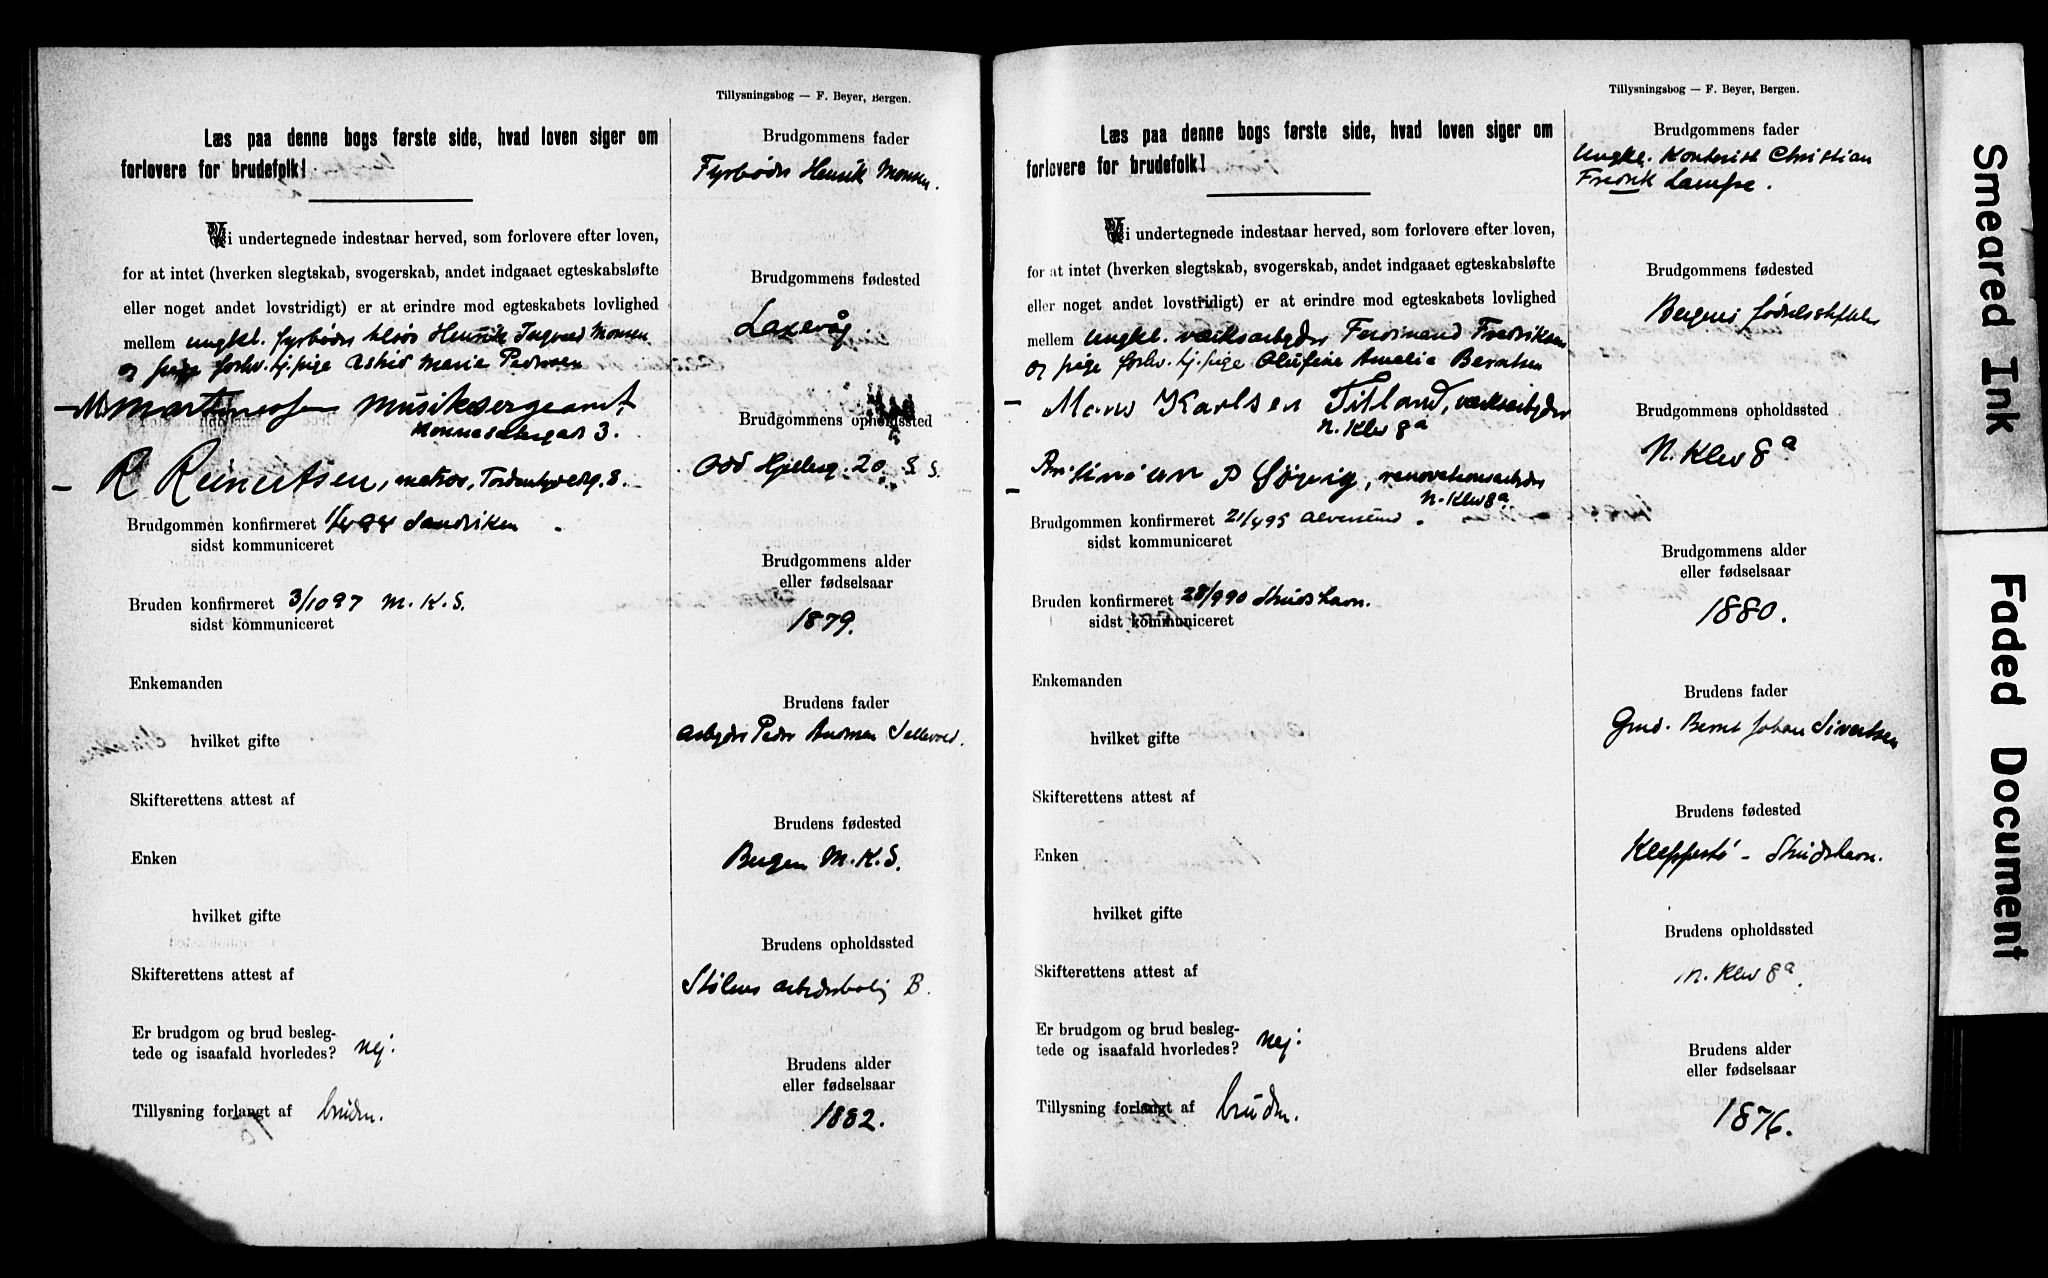 Tillysningsbog — F. Beyer, Bergen.
Læs paa denne bogs første side, hvad loven siger om
forlovere for brudefolk!
Vi undertegnede indestaar herved, som forlovere efter loven,
for at intet (hverken slegtskab, svogerskab, andet indgaaet egteskabsløfte
eller noget andet lovstridigt) er at erindre mod egteskabets lovlighed
mellem ungkl. fyrbøder Henrik Ingvald Monsen
og pige forhv. tj.pige Astrid Marie Pedersen
Martinessen Musiksergeant,
3.
R Reinertsen, matros, 8.
Brudgommen konfirmeret Sandviken
sidst kommuniceret
Bruden konfirmeret 3/10 97 M. K. S.
sidst kommuniceret
Enkemanden
hvilket gifte
Skifterettens attest af
Enken
hvilket gifte
Skifterettens attest af
Er brudgom og brud besleg-
tede og isaafald hvorledes? nej.
Tillysning forlangt af bruden.
Brudgommens fader
Fyrbøder Henrik Monsen.
Brudgommens fødested
Laxevåg.
Brudgommens opholdssted
Odd Hjelmsg. 20. S. S.
Brudgommens alder
eller fødselsaar
1879.
Brudens fader
arbeider Peder Andreas Sellevold.
Brudens fødested
Bergen M. K. S.
Brudens opholdssted
Stølens arbeiderbolig B.
Brudens alder
eller fødselsaar
1882.
Tillysningsbog — F. Beyer, Bergen.
Læs paa denne bogs første side, hvad loven siger om
forlovere for brudefolk!
Vi undertegnede indestaar herved, som forlovere efter loven,
for at intet (hverken slegtskab, svogerskab, andet indgaaet egteskabsløfte
eller noget andet lovstridigt) er at erindre mod egteskabets lovlighed
mellem Ungkl. værksarbeider Ferdinand Fredriksen
og pige forhv. tj.pige Olufine Amalie Berntsen
Mons Karlsen Titland, værksarbeider
N. Klev 8a
P Søvig, renovationsarbeider
N. Klev 8a
Brudgommen konfirmeret 21/4 95 Alversund.
sidst kommuniceret
Bruden konfirmeret 28/9 90 Strudshavn.
sidst kommuniceret
Enkemanden
hvilket gifte
Skifterettens attest af
Enken
hvilket gifte
Skifterettens attest af
Er brudgom og brud besleg-
tede og isaafald hvorledes? nej.
Tillysning forlangt af bruden.
Brudgommens fader
Ungkl. Kontorist Christian
Fredrik Lampe.
Brudgommens fødested
Bergens fødselsstiftelse
Brudgommens opholdssted
N. Klev 8a
Brudgommens alder
eller fødselsaar
1880.
Brudens fader
Gmd. Bernt Johan Sivertsen
Brudens fødested
Kleppestø - Strudshavn.
Brudens opholdssted
N. Klev 8a.
Brudens alder
eller fødselsaar
1876.
Smeared Ink
Faded Document